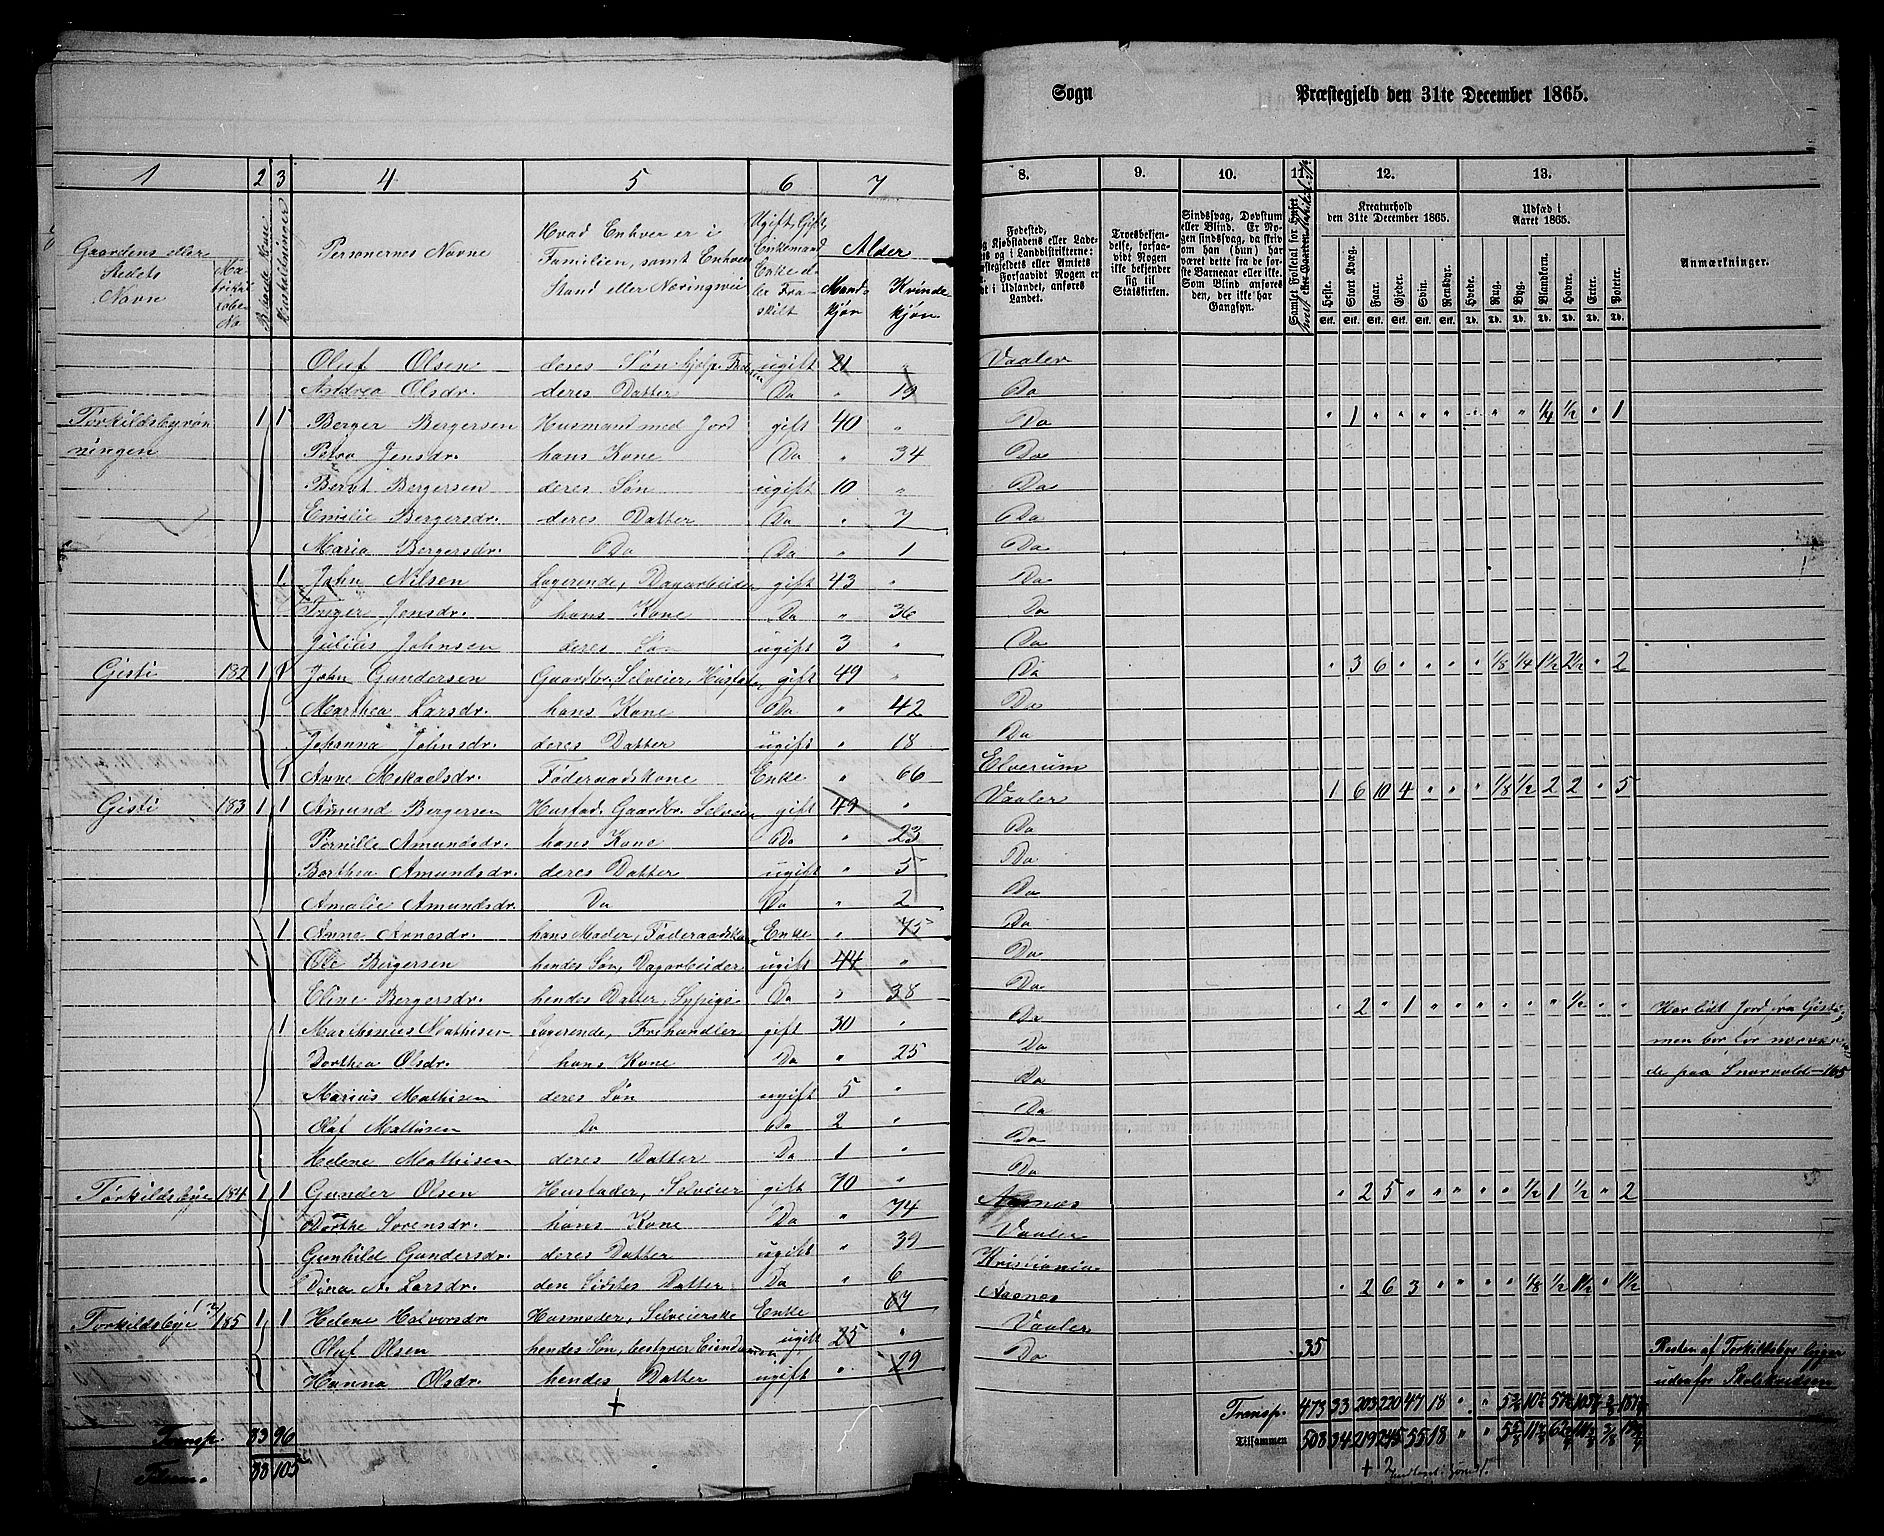 Sogn Præstegjeld den 31te December 1865.
1 2 3 4 5 6 7
Gaardens eller Stedets Navn
Beboede Huse
Husholdninger
Personernes Navne
Hvad Enhver er i Familien, samt Enhvers Stand eller Næringsvei
Ugift, Gift, Enkemand, Enke eller Fraskilt
Alder
Mandkjøn Kvindekjøn
8. 9. 10. 11. 12. 13.
Troesbekjendelse, forsaavidt Nogen ikke bekjender sig til Statskirken.
Sindssvag, Døvstum eller Blind. Er Nogen sindssvag, da skriv om han (hun) har været dette fra de første Barneaar eller ikke. Som Blind anføres den, der ikke har Gangsyn.
Kreaturhold den 31te December 1865.
Heste. Stort Kvæg. Faar. Gjeder. Svin. Rensdyr.
Udsæd i Aaret 1865.
Hvede. Rug. Byg. Blandkorn. Havre. Erter. Poteter.
Anmærkninger.
Oluf Olsen deres Søn hjelp. Faderen ugift 21 " Vaaler
Andrea Olsdr. deres Datter Do " 19 Do
Torkildsbyrønningen 1 1 Berger Bergersen Husmand med Jord gift 40 " Do " 1 " " " " " " " 1/4 1/2 " 1
Petra Jensdr. hans Kone Do " 34 Do
Bernt Bergersen deres Søn ugift 10 " Do
Emilie Bergersdr. deres Datter Do " 7 Do
Maria Bergersdr. Do Do " 1 Do
1 John Nilsen Logerende, Dagarbeider gift 43 " Do
Inger Jensdr. hans Kone Do " 36 Do
Julius Johnsen deres Søn ugift 3 " Do
Gisti 182 1 1 John Gundersen Gaardbr. Selveier, Husfader gift 49 " Do " 3 6 " " " " 1/8 1/4 1 1/2 2 1/2 " 2
Marthea Larsdr. hans Kone Do " 42 Do
Johanna Johnsdr. deres Datter ugift " 18 Do
1 Anne Mikaelsdr. Føderaadskone Enke " 66 Elverum
Gisti 183 1 1 Amund Bergersen Husfad. Gaardbr. Selveier gift 49 " Vaaler 1 6 10 4 " " " 1/8 1/2 2 2 " 5
Pernille Amundsdr. hans Kone Do " 23 Do
Berthea Amundsdr. deres Datter ugift " 5 Do
Amalie Amundsdr. Do Do " 2 Do
1 Anne Arnesdr. hans Moder, Føderaadsk. Enke " 75 Do
Ole Bergersen hendes Søn, Dagarbeider ugift 44 " Do
Eline Bergersdr. hendes Datter, Sypige Do " 38 Do
1 Marthinius Mathisen Logerende, Frihandler gift 30 " Do " 2 " 1 " " " " " " 1/2 " " Har lidt Jord fra Gisti,
Dorthea Olsdr. hans Kone Do " 25 Do men bor for nærværen-
Marius Mathisen deres Søn ugift 5 " Do de paa Snarvold-165
Olaf Mathisen Do Do 2 " Do
Helene Mathisen deres Datter Do 1 " Do
Torkildsbye 184 1 1 Gunder Olsen Husfader, Selveier gift 70 " Aasnes " 2 5 " " " " " 1/2 1 1/2 " 2
Dorthe Sørensdr. hans Kone Do " 74 Vaaler
Gunhild Gundersdr. deres Datter ugift " 39
Dina A. Larsdr. den Sidstes Datter Do " 6 Kristiania
Torkildsbye 185 1 1 Helene Halvorsdr. Husmoder, Selveierske Enke " 67 Aasnes " 2 6 3 " " " " 1/8 1/2 1 1/2 " 1 1/2
Oluf Olsen hendes Søn, bestyrer Eiendommen ugift 25 " Vaaler
Hanna Olsdr. hendes Datter ugift " 29 Do 35 Resten af Torkildsbye ligger
udenfor Skolekredsen
Transp. 83 96 Transp. 473 33
88 105 Tilsammen 508 34 219 245 55 18